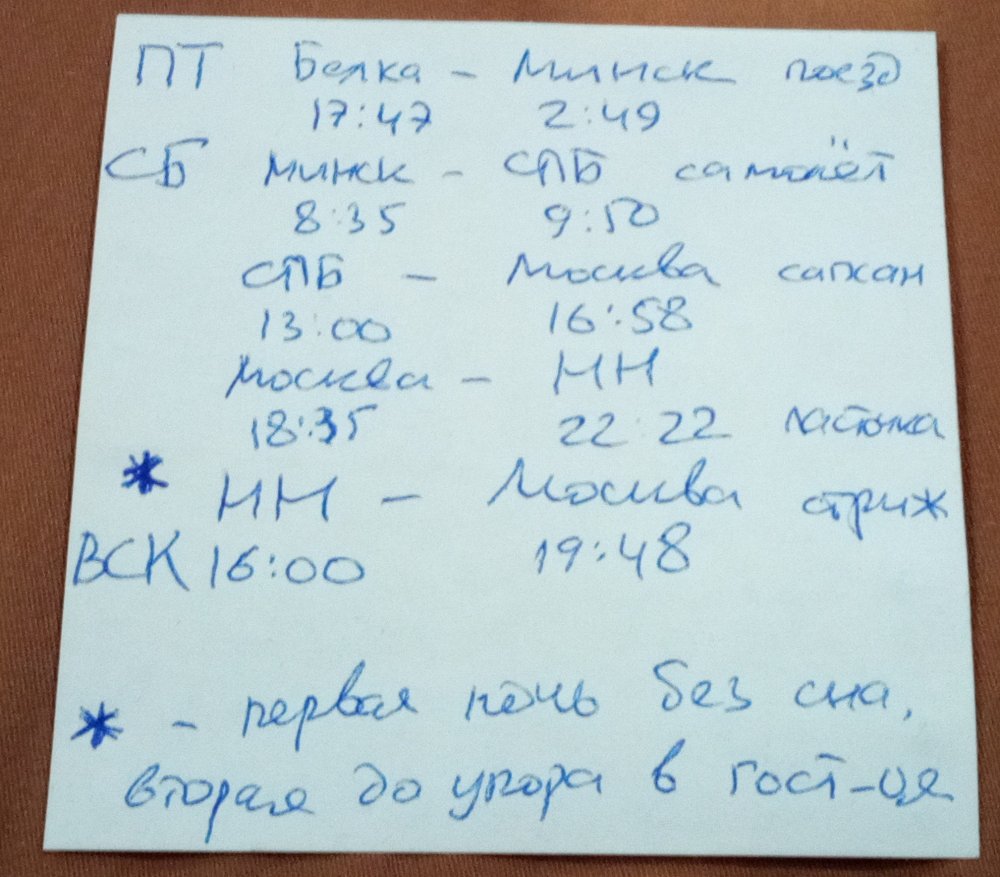 ПТ Белка - Минск поезд
17:47 2:49
СБ Минск - СПБ самолёт
8:35 9:50
СПБ - Москва сапсан
13:00 16:58
Москва - НН
18:35 22:22 ласточка
* НН - Москва стриж
ВСК 16:00 19:48
* - первая ночь без сна,
вторая до упора в гост-це